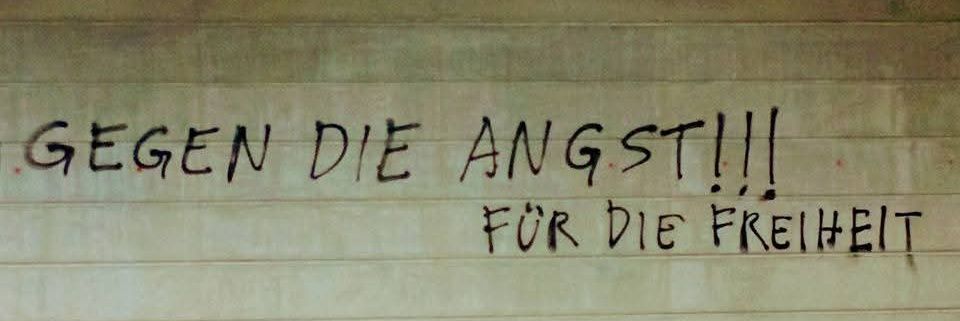 GEGEN DIE ANGST!!!
FÜR DIE FREIHEIT